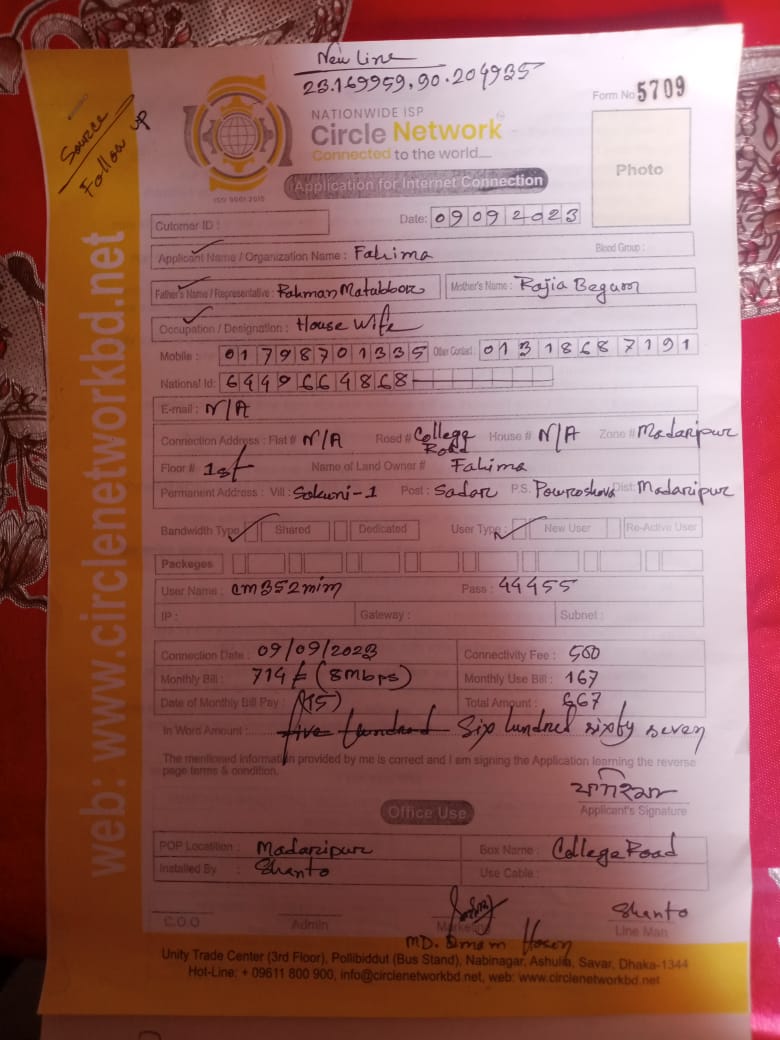 New Line
23.169959,90.204935
Source
Follow up
Form No 5709
NATIONWIDE ISP
Circle Network
Connected to the world....
ISO 9001:2015
Application for Internet Connection
Photo
Cutomer ID :
Date: 09092023
Applicant Name / Organization Name : Fahima Blood Group :
Father's Name / Representative : Rahman Matubbor Mother's Name : Rajia Begum
Occupation / Designation : House Wife
Mobile : 01798701335 Other Contact : 01318687191
National Id: 6449664868
E-mail : N/A
Connection Address : Flat # N/A Road # College Road House # N/A Zone # Madaripur
Floor # 1st Name of Land Owner # Fahima
Permanent Address : Vill : Sokuni-1 Post : Sadar P.S. Powroshova Dist: Madaripur
Bandwidth Type Shared Dedicated User Type : New User Re-Active User
Packeges
User Name : cm352mim Pass : 44455
IP : Gateway : Subnet :
Connection Date : 09/09/2023 Connectivity Fee : 500
Monthly Bill : 714/= (8Mbps) Monthly Use Bill : 167
Date of Monthly Bill Pay : (15) Total Amount : 667
In Word Amount : five hundred Six hundred sixty seven
The mentioned information provided by me is correct and I am signing the Application learning the reverse
page terms & condition.
Applicant's Signature
Office Use
POP Locatition : Madaripur Box Name : College Road
Installed By : Shanto Use Cable :
Shanto
C.O.O Admin Marketing Line Man
MD. Emam Hosen
Unity Trade Center (3rd Floor), Pollibiddut (Bus Stand), Nabinagar, Ashulia, Savar, Dhaka-1344
Hot-Line: + 09611 800 900, info@circlenetworkbd.net, web: www.circlenetworkbd.net
web: www.circlenetworkbd.net